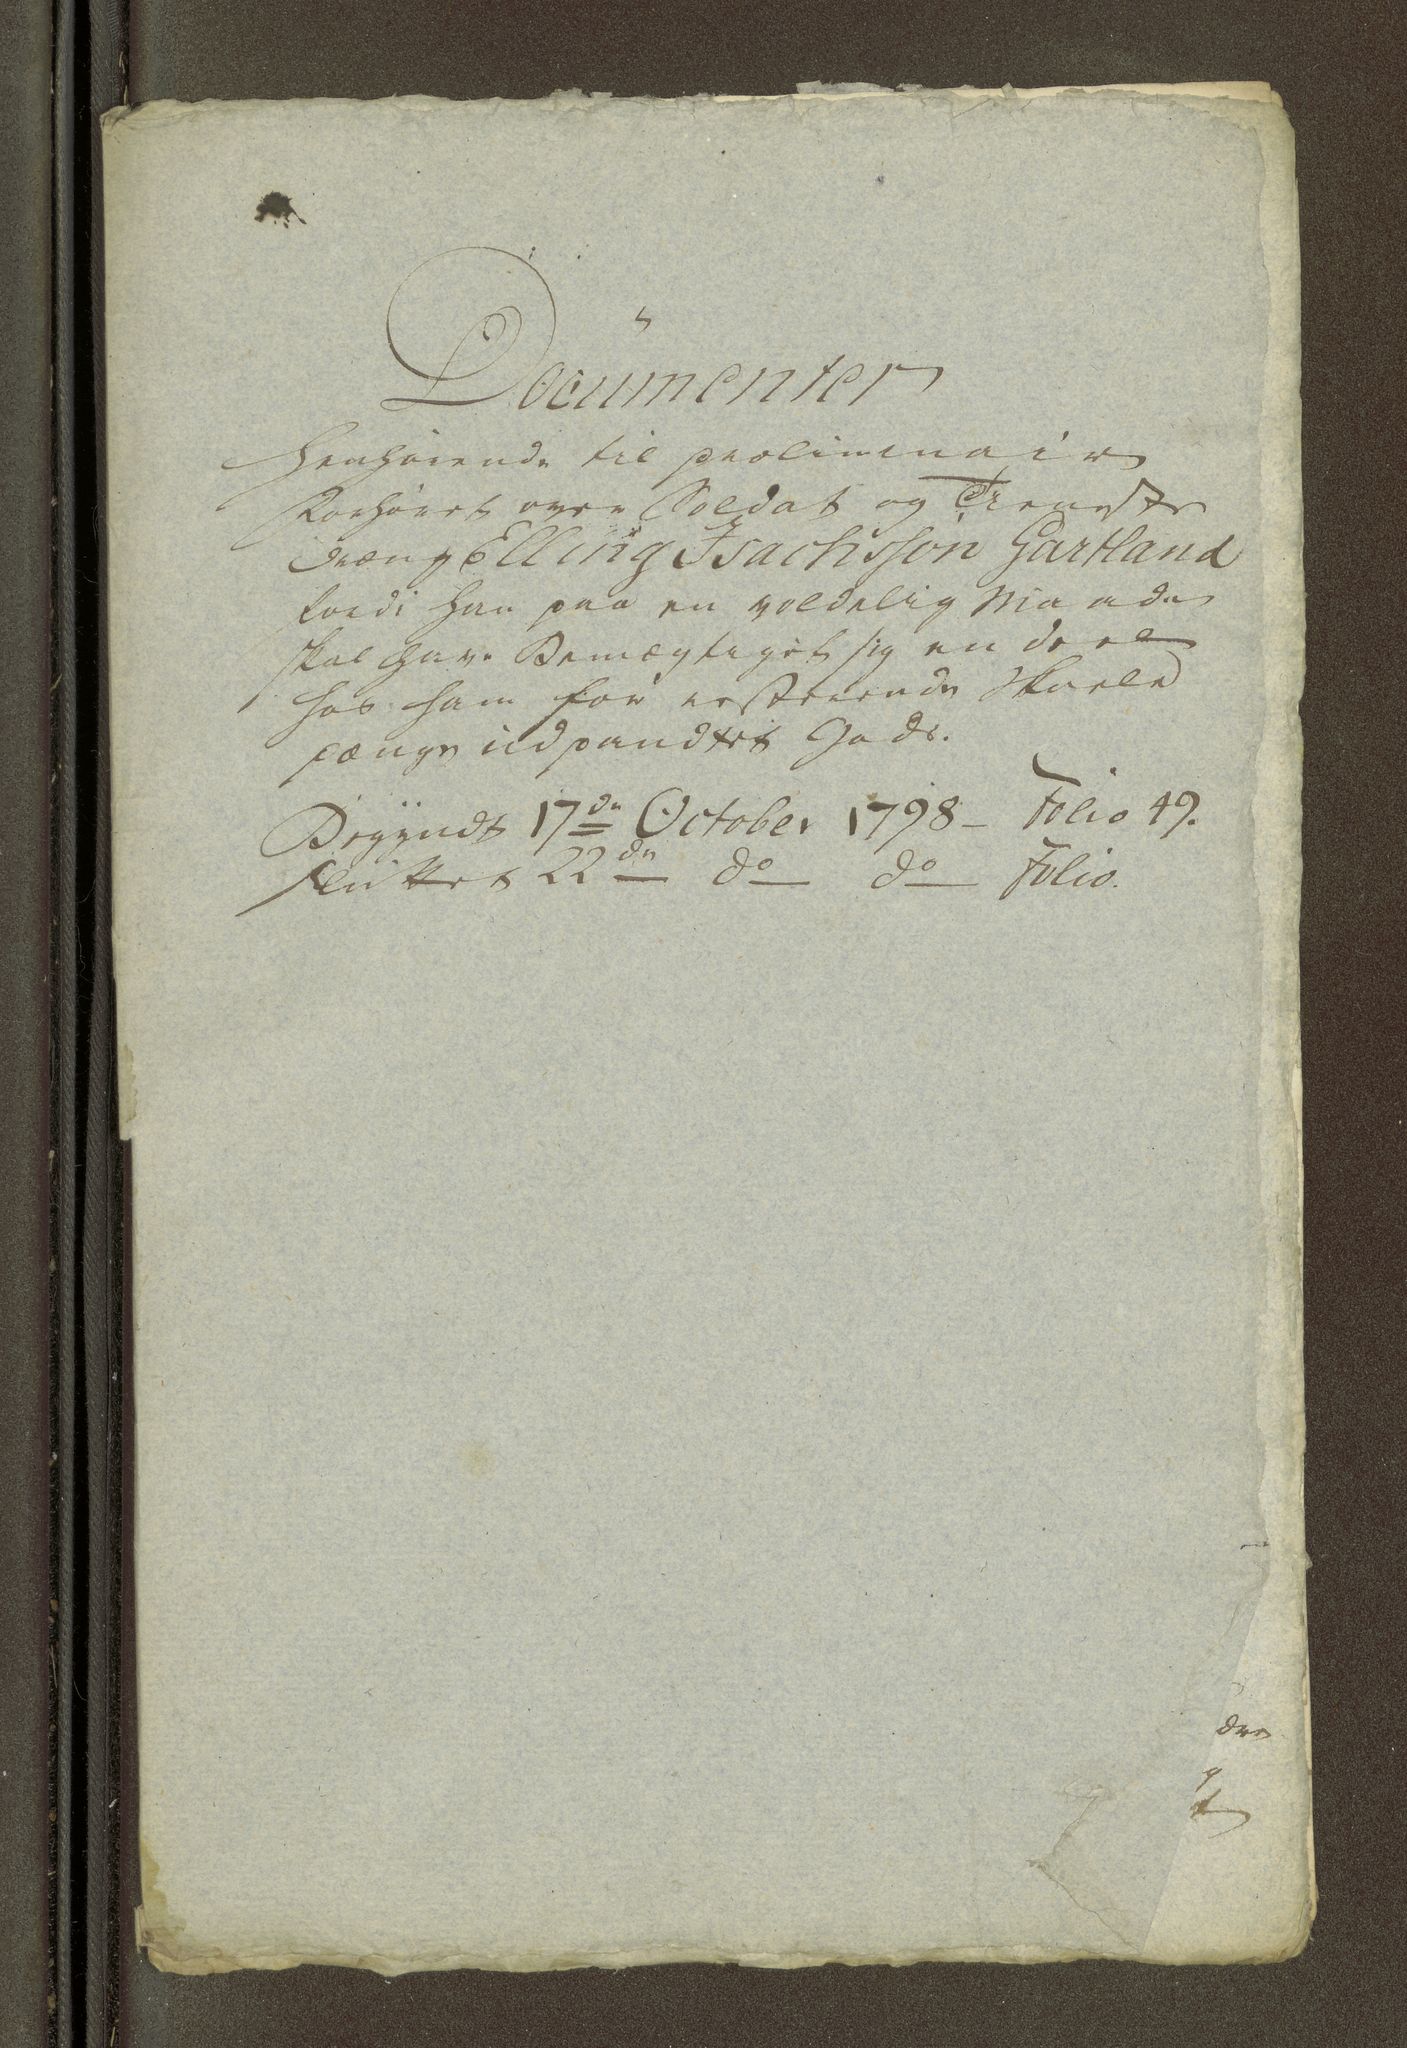 Documenter
Henhörende til preliminair
Forhöret over Soldat og Tieneste
dræng Elling Isachssön Gartland
fordi han paa en voldelig Maade
skal have Bemægtiget sig en deel
hos ham for resterende Skole
pænge udpandtet Gods.
Begyndt 17de October 1798 - Folio 49.
Sluttet 22de do do Folio.
den